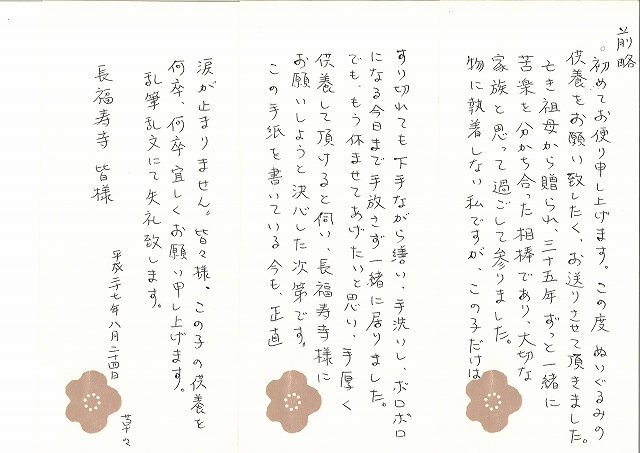 前略
。初めてお便り申し上げます。この度 ぬいぐるみの
供養をお願い致したく、お送りさせて頂きました。
亡き祖母から贈られ、三十五年 ずっと一緒に
苦楽を分かち合った相棒であり、大切な
家族と思って過ごして参りました。
物に執着しない私ですが、この子だけは
すり切れても下手ながら繕い、手洗いし、ボロボロ
になる今日まで手放さず一緒に居りました。
でも、もう休ませてあげたいと思い、手厚く
供養して頂けると伺い、長福寿寺様に
お願いしようと決心した次第です。
この手紙を書いている今も 正直
涙が止まりません。皆々様、この子の供養を
何卒、何卒宜しくお願い申し上げます。
乱筆乱文にて失礼致します。
長福寿寺 皆様
平成二十七年八月二十四日
草々